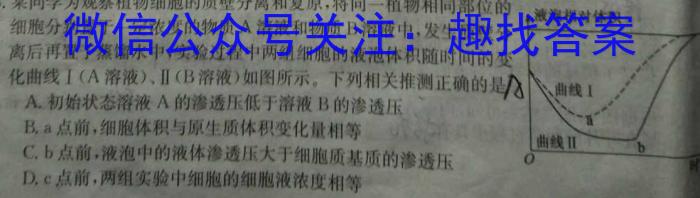 某同学为观察植物细胞的质壁分离和复原，将同一植物相同部位的
细胞分
微信公众号关注：趣找答案
离后再置
化曲线Ⅰ(A溶液)、Ⅱ(B溶液)如图所示。下列相关推测正确的是
A. 初始状态溶液A的渗透压低于溶液B的渗透压
B. a点前，细胞体积与原生质体积变化量相等
C. b点前，液泡中的液体渗透压大于细胞质基质的渗透压
D. c点前，两组实验中细胞的细胞液浓度相等
曲线Ⅰ
a
曲线Ⅱ
b
O